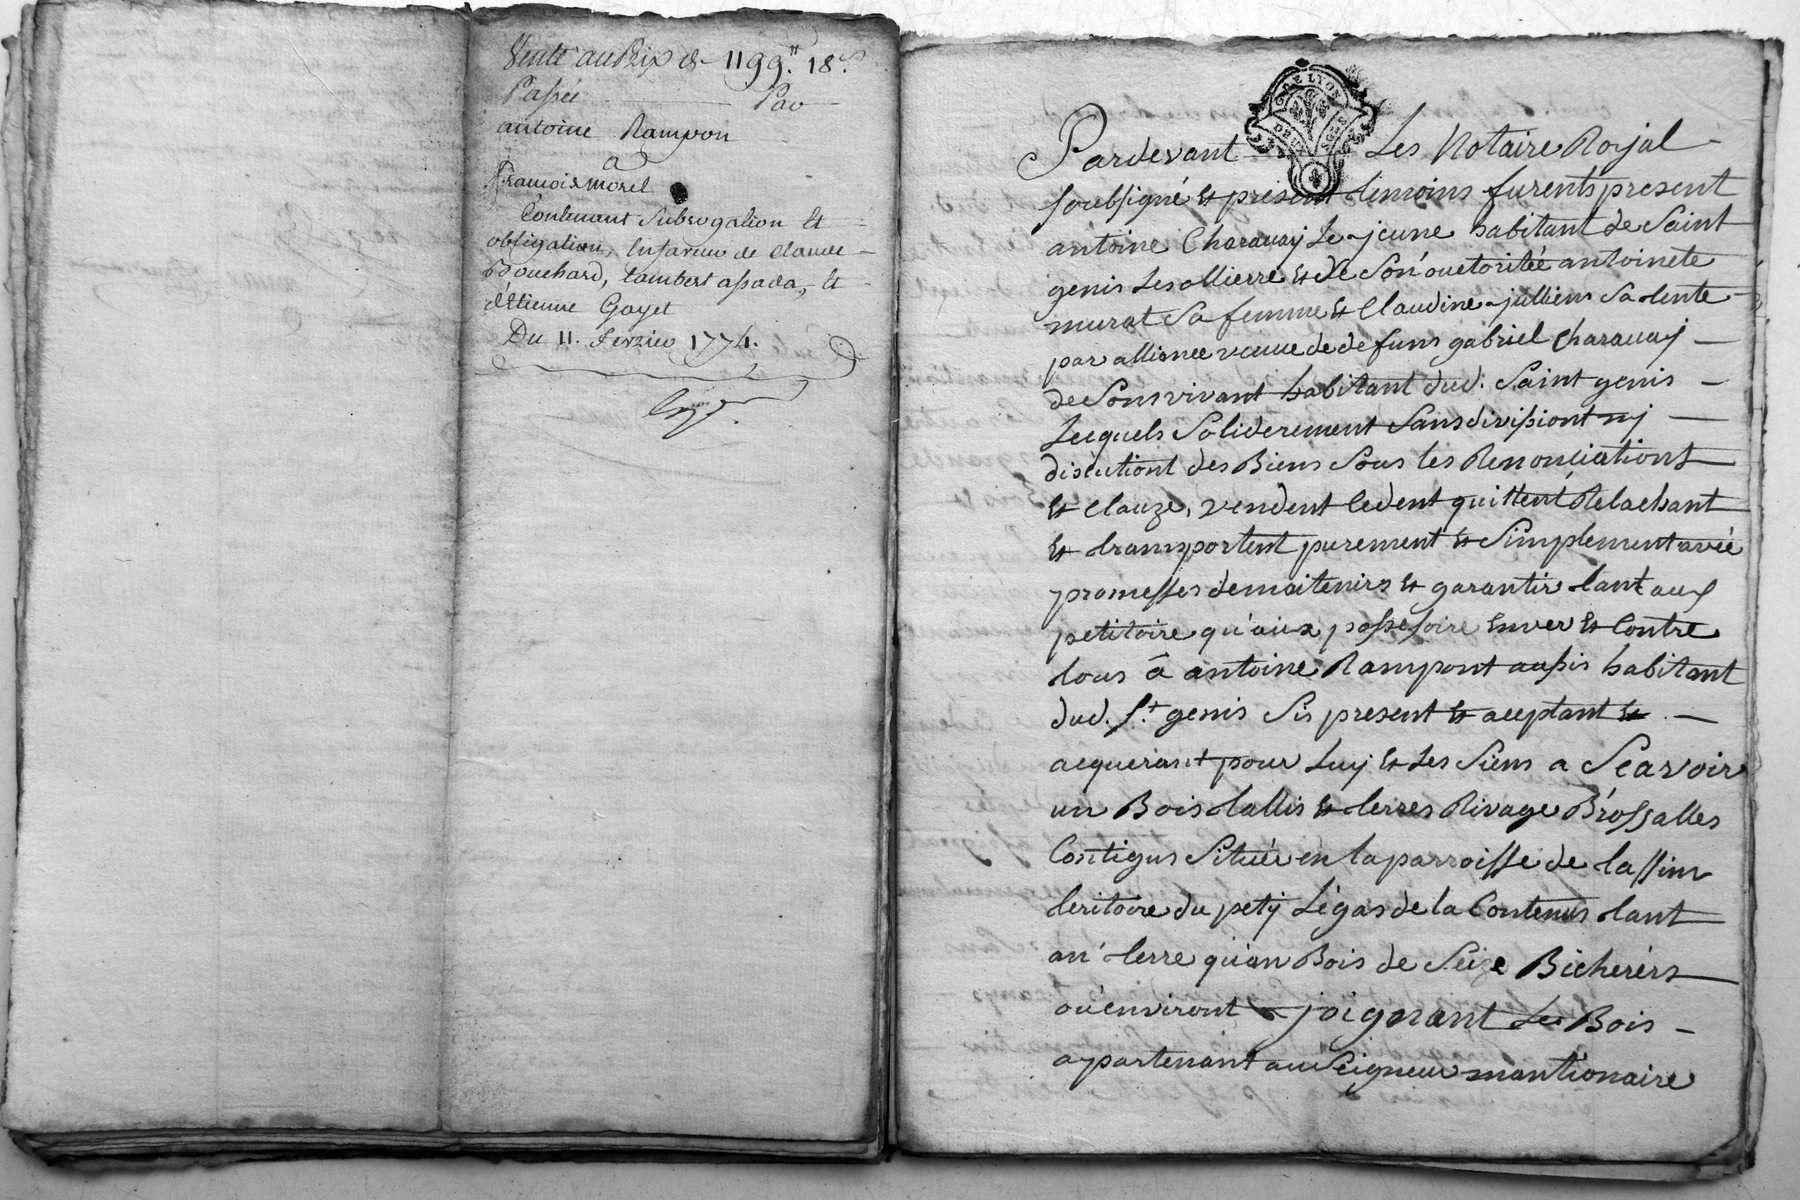 Vente au Prix de 1199.ᴴ 18.ˢ
Passée Par
antoine Rampon
a
francois morel
Contenant Subrogation Et
obligation, En faveur de Claude
Bouchard, Lambert assada, Et
d'Etienne Gayet
Du 11. Fevrier 1774.
G. DE LYON
DEUX SOLS
Pardevant Les Notaire Royal
soubsigné Et present temoins furents present
antoine Charavay Le jeune habitant de Saint
genis Les ollierre Et de Son ouctoritée antoinete
murat Sa femme Et Claudine julliens Sa tente
par allience veuve de defuns gabriel Charavay
de Son vivant habitant dud. Saint genis
Lecquels Soliderement Sans divisiont ny
discutiont des Biens Sous les Renonciationts
Et Clauze, vendent Cedent quittent Relachant
Et transportent purement Et Simplement avec
promesses de maitenirs Et garantir tant aux
petitoire qu'aux possesoire Enver Et Contre
tous â antoine Rampont aussis habitant
dud. S.t genis Sis present Et acceptant Et
acquerant pour Luy Et Les Siens a Scavoir
un Bois tallis Et terres Rivage Brossalles
Contigus Situér en la parroisse de lassim
teritoire du pety Légas de la Contenus tant
an terre qu'an Bois de Seize Bicherérs
ou environt joignant Le Bois
apartenant au Seigneur mantionaire